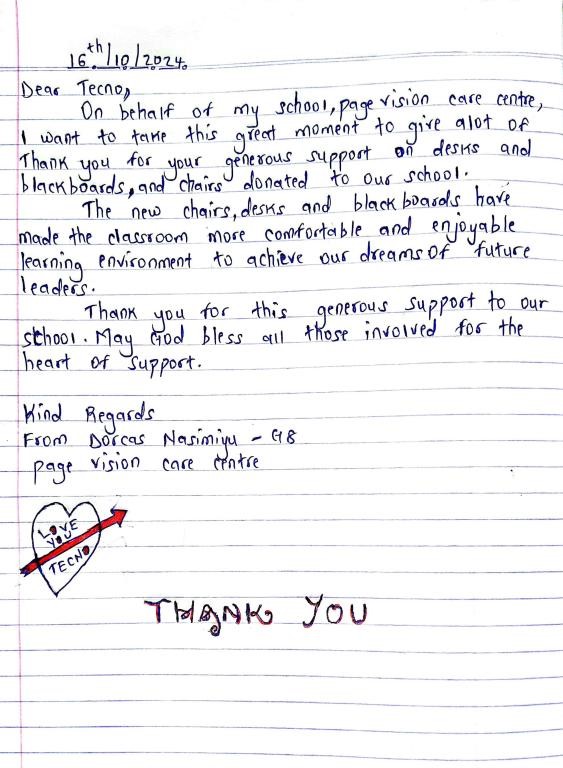 16th/10/2024.
Dear Tecno,
On behalf of my school, page vision care centre,
I want to take this great moment to give alot of
Thank you for your generous support on desks and
blackboards, and chairs donated to our school.
The new chairs, desks and blackboards have
made the classroom more comfortable and enjoyable
learning environment to achieve our dreams of future
leaders.
Thank you for this generous support to our
school. May God bless all those involved for the
heart of support.
Kind Regards
From Dorcas Nasimiyu - G8
page vision care centre
LOVE
YOU
TECNO
THANK YOU